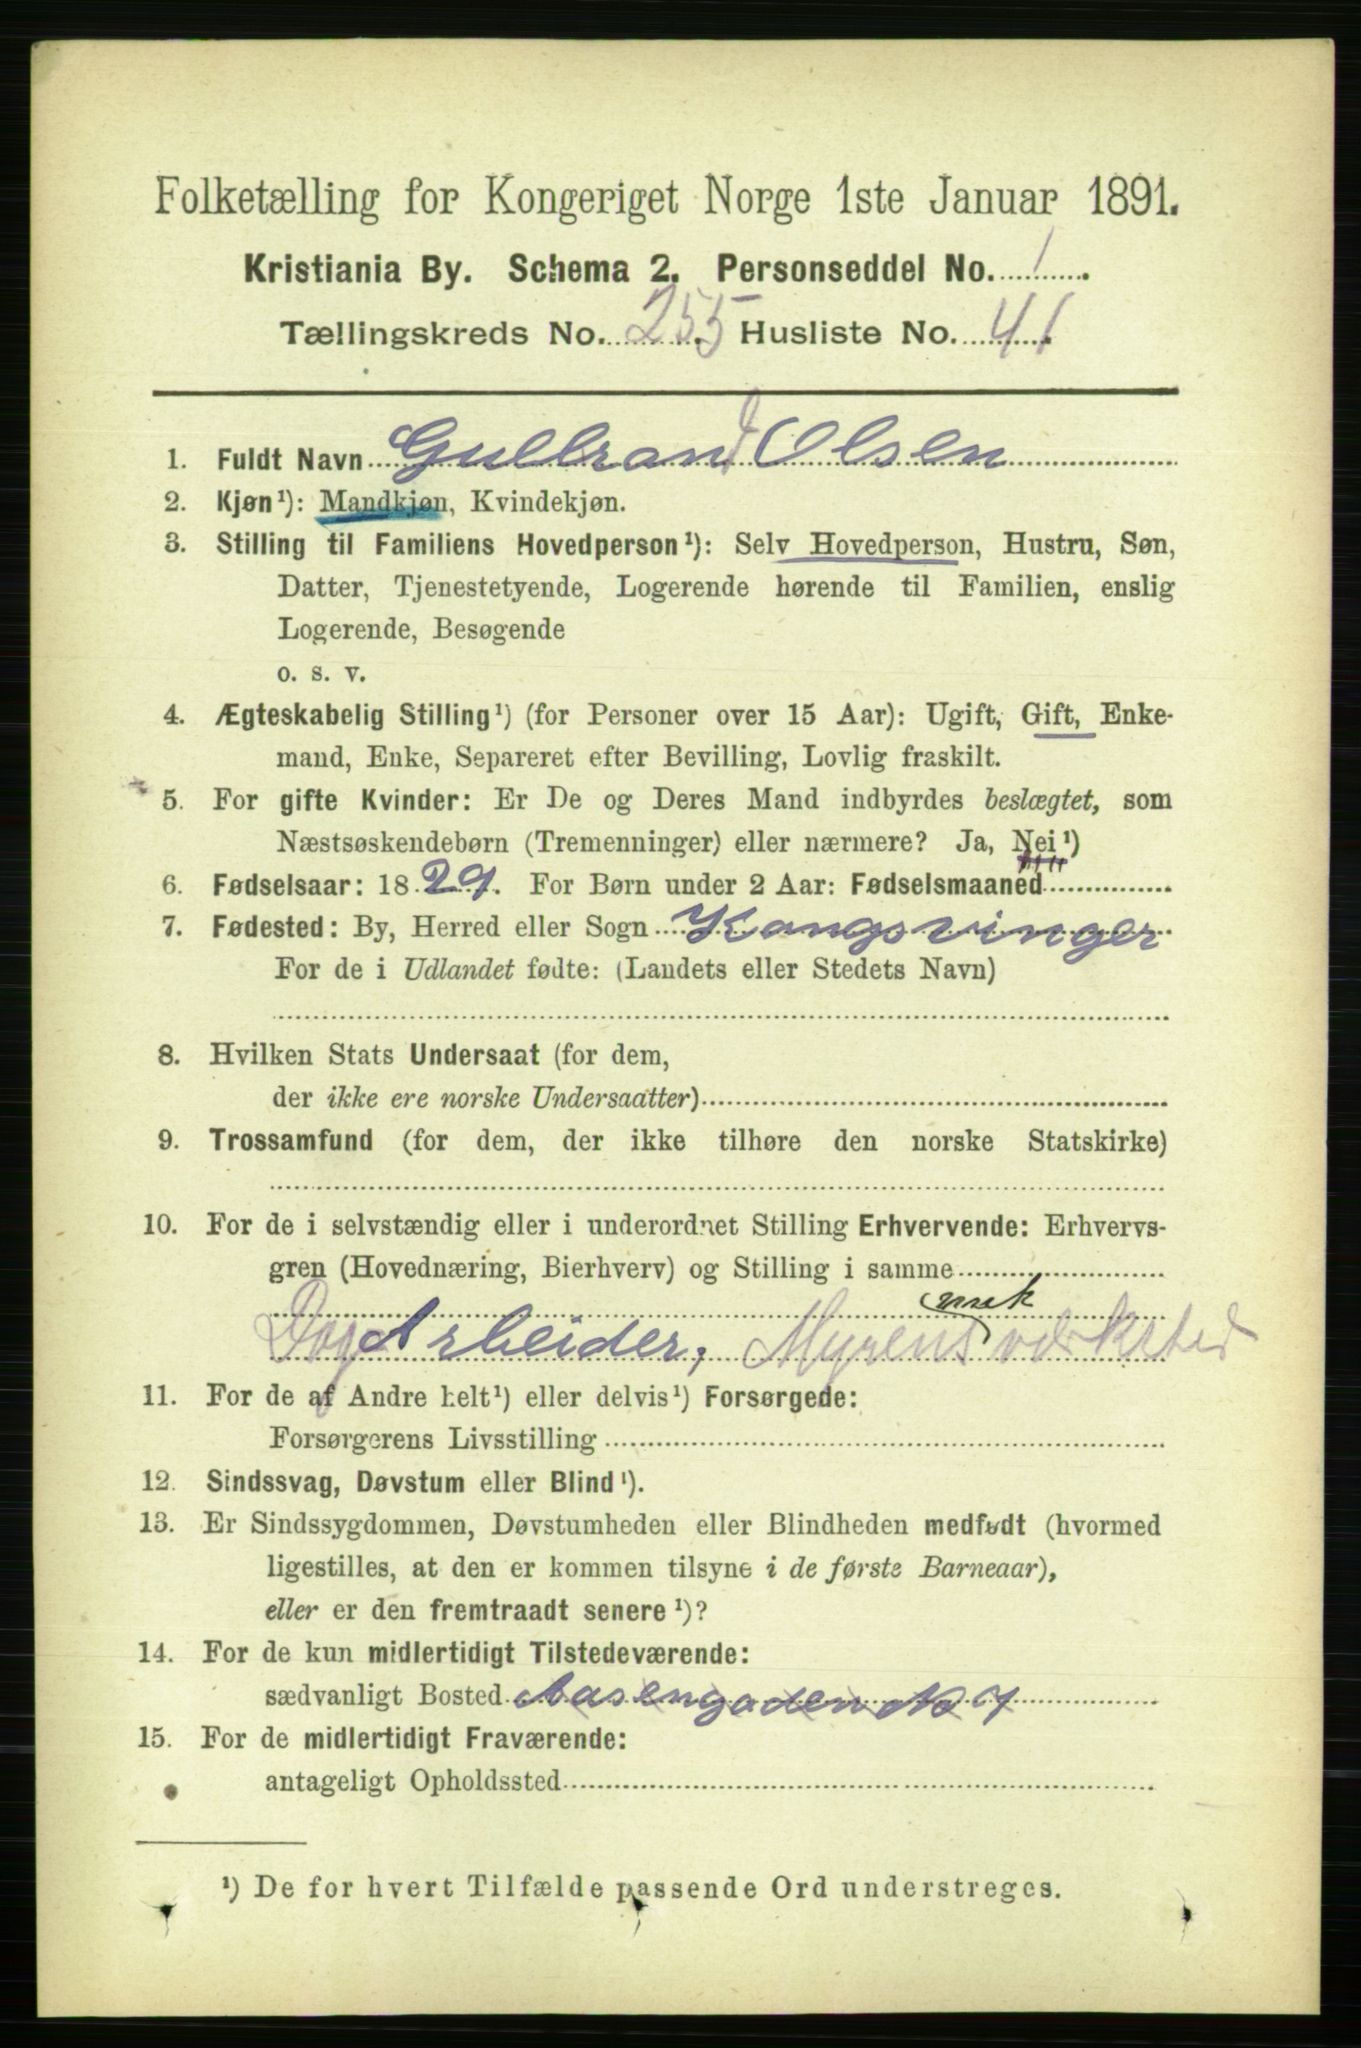 Folketælling for Kongeriget Norge 1ste Januar 1891.
Kristiania By. Schema 2. Personseddel No. 1.
Tællingskreds No. 255. Husliste No. 41.
1. Fuldt Navn Gulbrand Olsen
2. Kjøn¹): Mandkjøn, Kvindekjøn.
3. Stilling til Familiens Hovedperson¹): Selv Hovedperson, Hustru, Søn,
Datter, Tjenestetyende, Logerende hørende til Familien, enslig
Logerende, Besøgende
o. s. v.
4. Ægteskabelig Stilling¹) (for Personer over 15 Aar): Ugift, Gift, Enke-
mand, Enke, Separeret efter Bevilling, Lovlig fraskilt.
5. For gifte Kvinder: Er De og Deres Mand indbyrdes beslægtet, som
Næstsøskendebørn (Tremenninger) eller nærmere? Ja, Nei¹)
6. Fødselsaar: 1829. For Børn under 2 Aar: Fødselsmaaned
7. Fødested: By, Herred eller Sogn Kongsvinger
For de i Udlandet fødte: (Landets eller Stedets Navn)
8. Hvilken Stats Undersaat (for dem,
der ikke ere norske Undersaatter)
9. Trossamfund (for dem, der ikke tilhøre den norske Statskirke)
10. For de i selvstændig eller i underordnet Stilling Erhvervende: Erhvervs-
gren (Hovednæring, Bierhverv) og Stilling i samme
mek
Dag Arbeider, Myrens værksted
11. For de af Andre helt¹) eller delvis¹) Forsørgede:
Forsørgerens Livsstilling
12. Sindssvag, Døvstum eller Blind¹).
13. Er Sindssygdommen, Døvstumheden eller Blindheden medfødt (hvormed
ligestilles, at den er kommen tilsyne i de første Barneaar),
eller er den fremtraadt senere¹)?
14. For de kun midlertidigt Tilstedeværende:
sædvanligt Bosted Aasengaden No 7
15. For de midlertidigt Fraværende:
antageligt Opholdssted
¹) De for hvert Tilfælde passende Ord understreges.